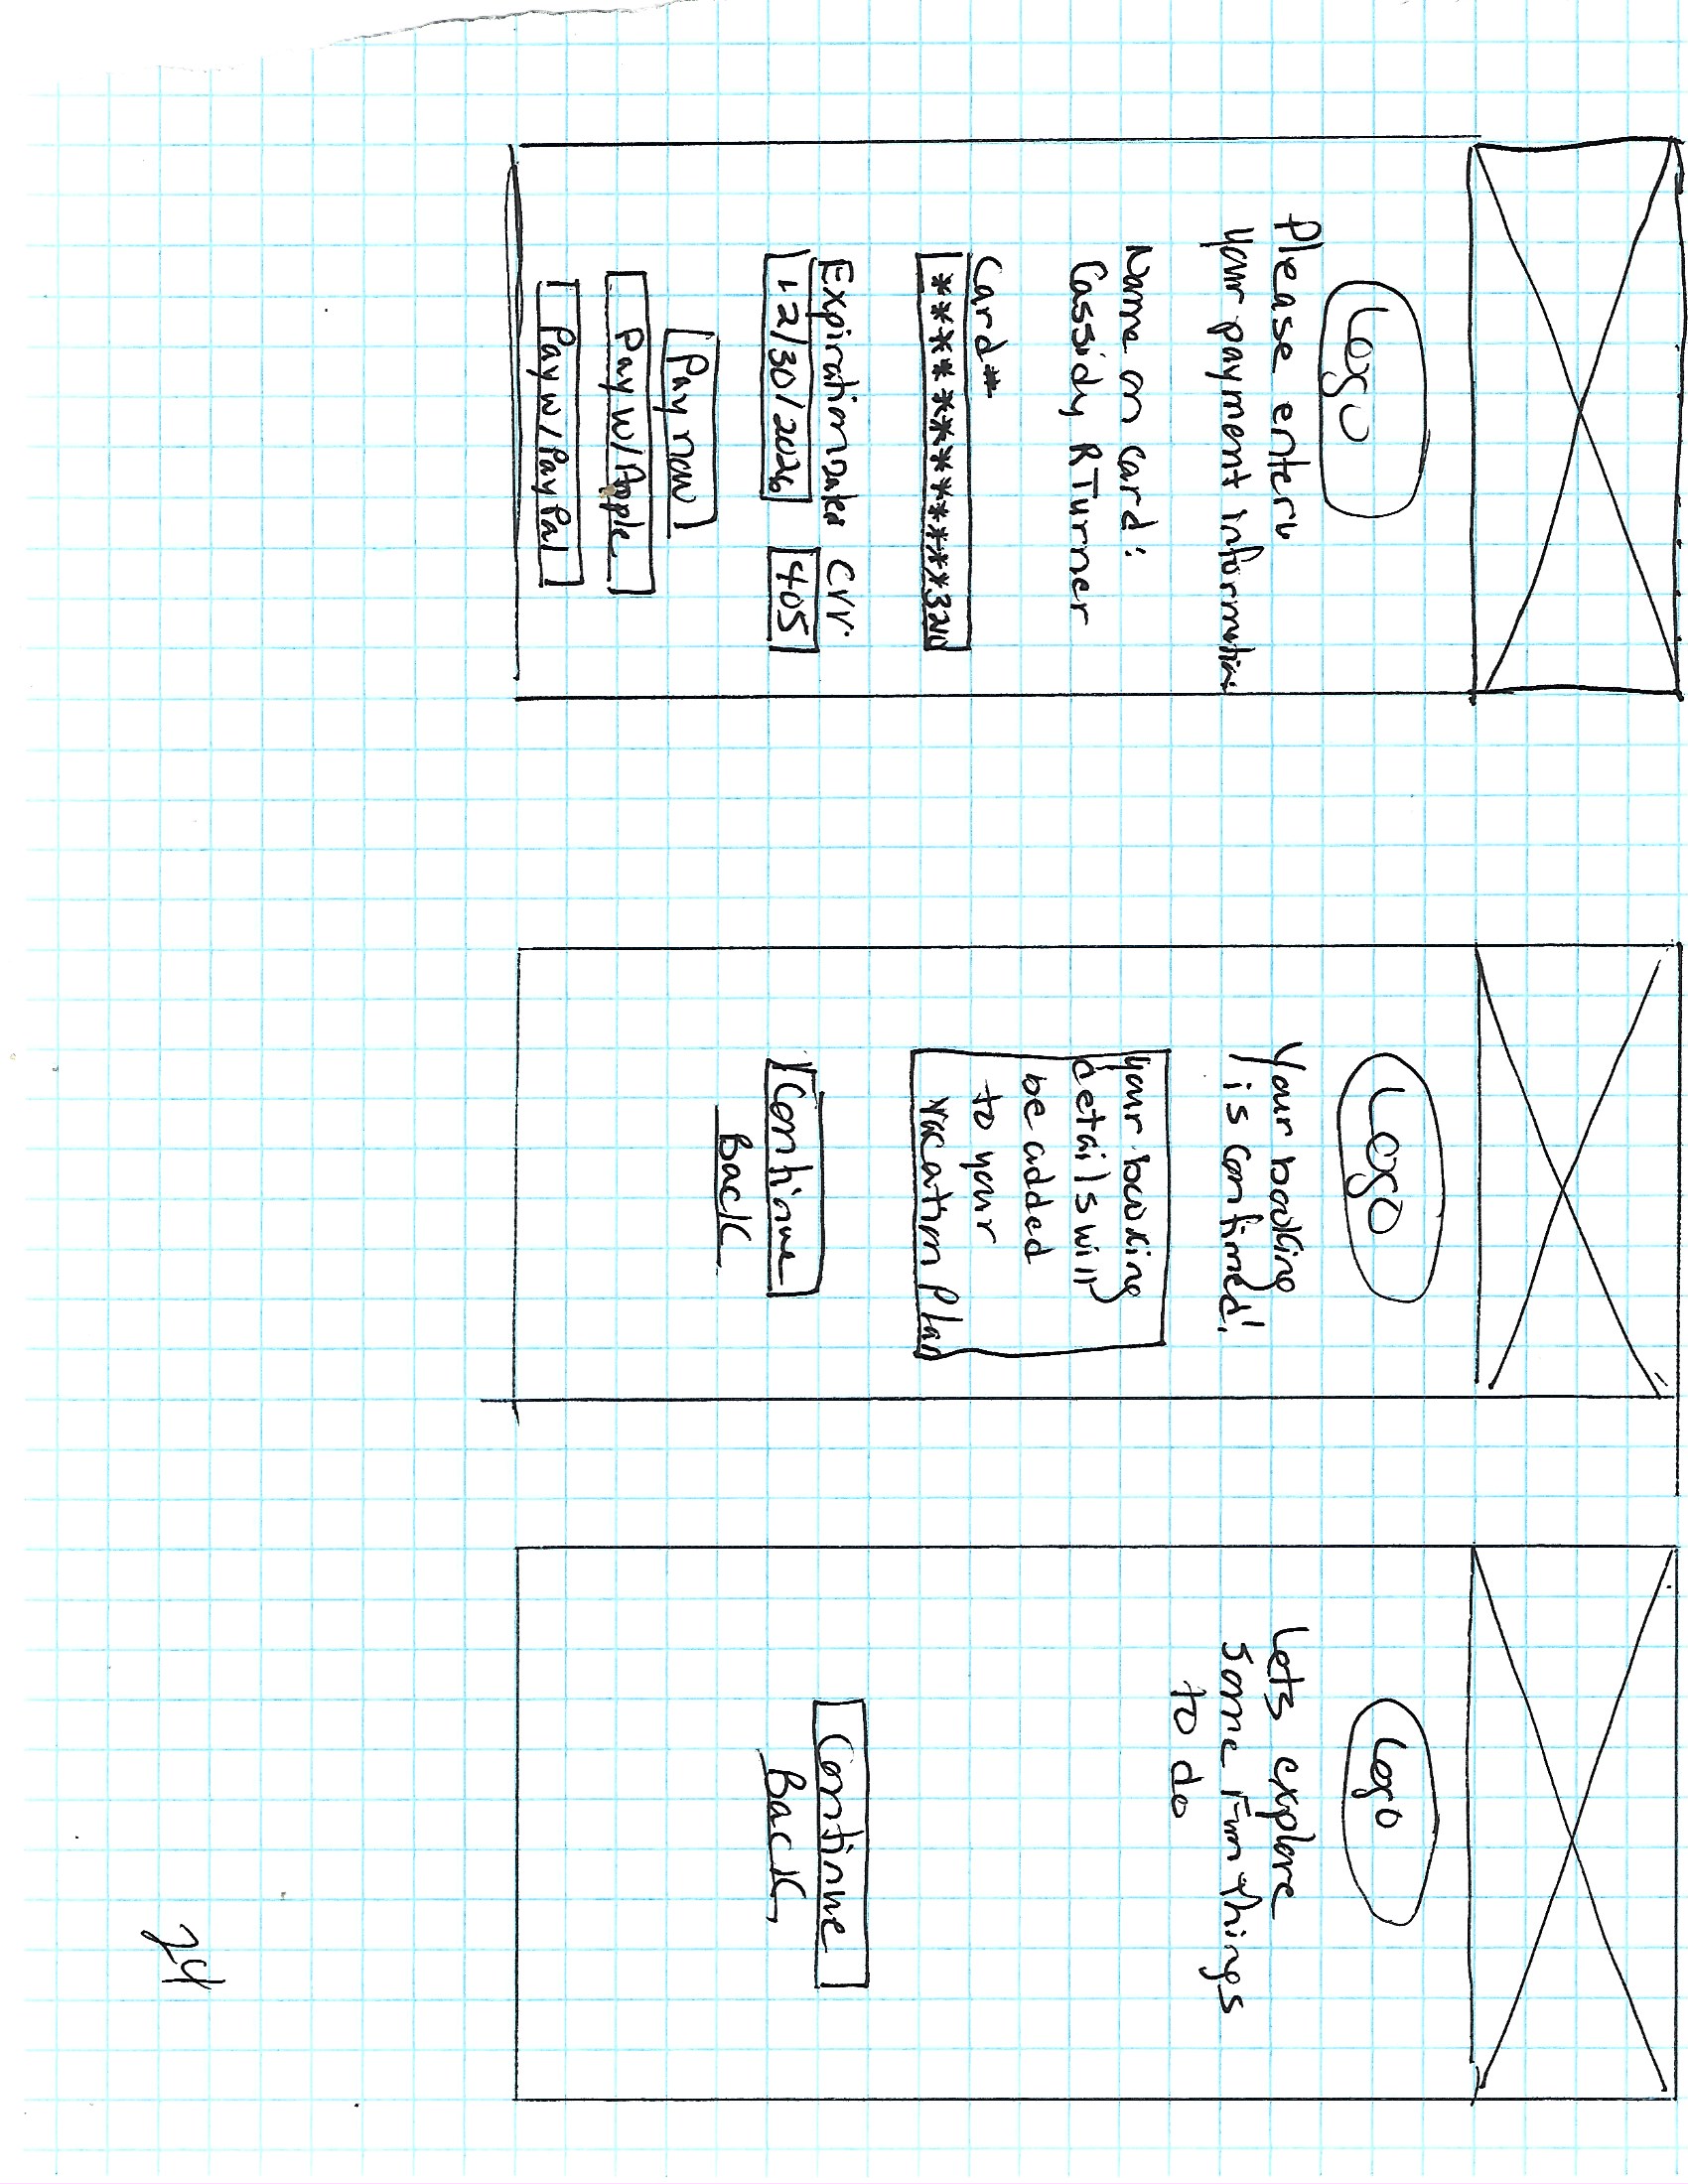 Logo
Please enter
your payment information
Name on card:
Cassidy R Turner
Card#
Expiration Date CVV.
12/30/2026 405
Pay now
Pay w/ Apple
Pay w/ PayPal
Logo
Your booking
is confirmed!
your booking
details will
be added
to your
vacation plan
Continue
Back
Logo
Lets explore
some Fun things
to do
Continue
Back
24